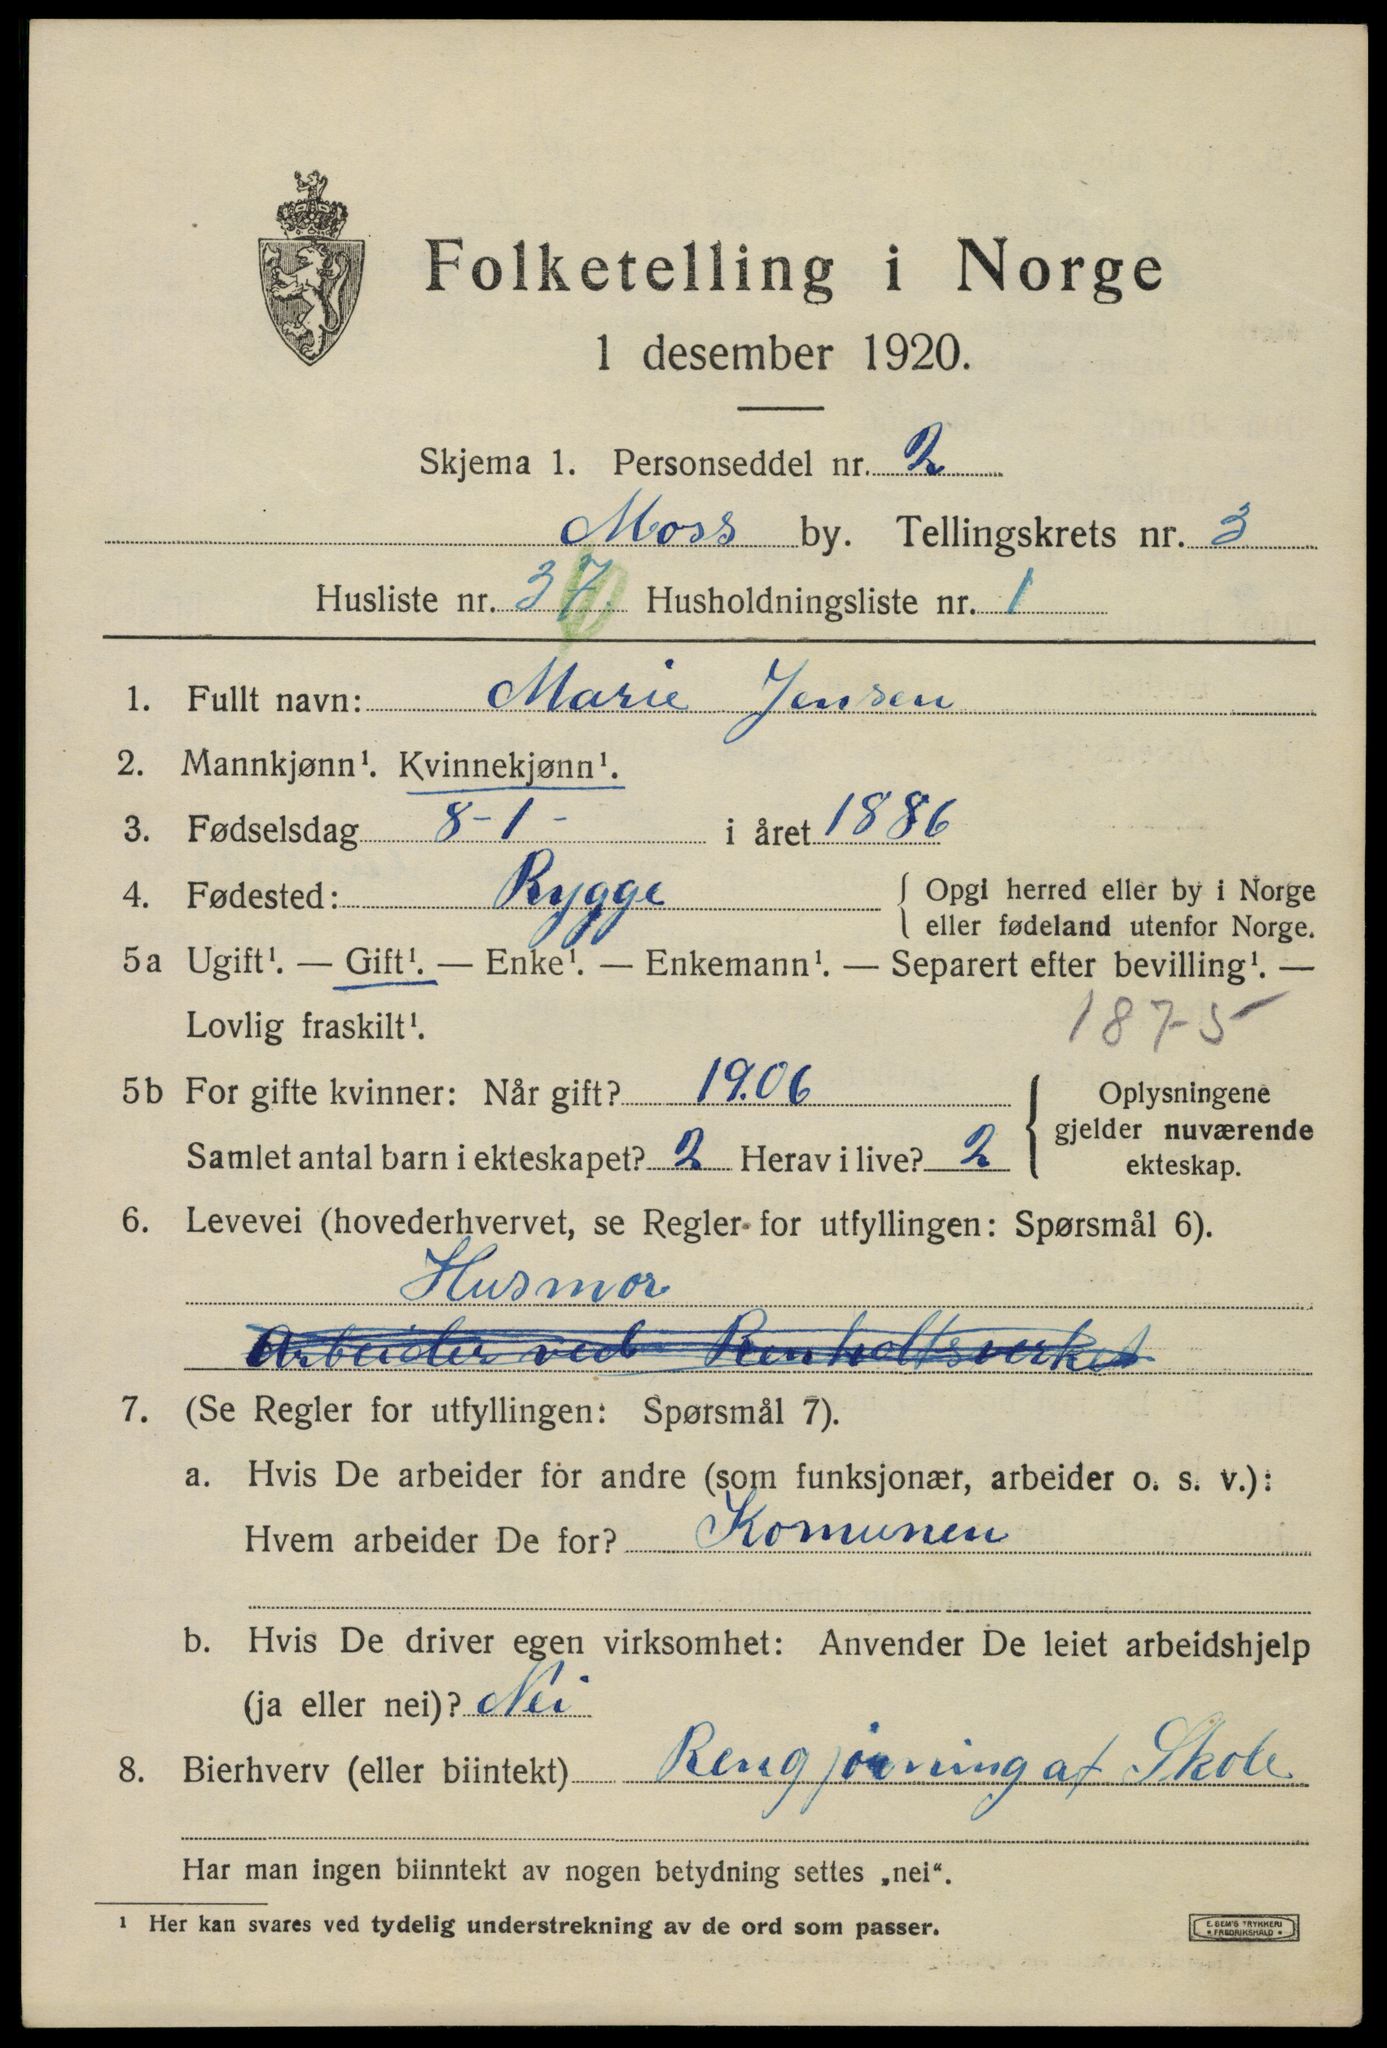 Folketelling i Norge
1 desember 1920.
Skjema 1. Personseddel nr. 2
Moss by. Tellingskrets nr. 3
Husliste nr. 37. Husholdningsliste nr. 1
1. Fullt navn: Marie Jensen
2. Mannkjønn¹. Kvinnekjønn¹.
3. Fødselsdag 8-1- i året 1886
4. Fødested: Rygge { Opgi herred eller by i Norge
eller fødeland utenfor Norge.
5a Ugift¹. — Gift¹. — Enke¹. — Enkemann¹. — Separert efter bevilling¹. —
Lovlig fraskilt¹. 1875
5b For gifte kvinner: Når gift? 19.06
Samlet antal barn i ekteskapet? 2 Herav i live? 2
{ Oplysningene
gjelder nuværende
ekteskap.
6. Levevei (hovederhvervet, se Regler for utfyllingen: Spørsmål 6).
Husmor
Arbeider ved Renholtsverket
7. (Se Regler for utfyllingen: Spørsmål 7).
a. Hvis De arbeider for andre (som funksjonær, arbeider o. s. v.):
Hvem arbeider De for? Komunen
b. Hvis De driver egen virksomhet: Anvender De leiet arbeidshjelp
(ja eller nei)? Nei
8. Bierhverv (eller biintekt) Rengjørning af Skole
Har man ingen biinntekt av nogen betydning settes „nei“.
¹ Her kan svares ved tydelig understrekning av de ord som passer.
E. SEM'S TRYKKERI
* FREDRIKSHALD *